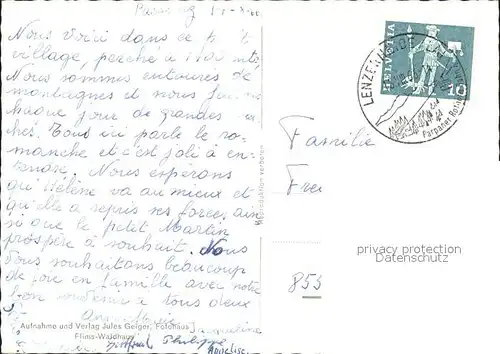 Nous voici dans ce p't
village, perché à 1100 mts
Nous sommes entourés de
montagnes et nous
chaque jour de grandes
ches. Tous ici parle le ro-
manche et c'est joli à en-
tendre. Nous espérons
qu'Hélène va au mieux et
qu'elle a repris ses forces, ain
si que le petit Martin
prospère à souhait. Nous
Vous souhaitons beaucoup
de joie en famille avec notre
bon souvenir à tous deux
Jacqueline
Philippe
Anneлise
Aufnahme und Verlag Jules Geiger, Fotohaus
Flims-Waldhaus
Reproduktion verboten
HELVETIA
10
LENZERHEIDE
Parpaner Rothorn
Familie
Frei
853
privacy protection
Datenschutz